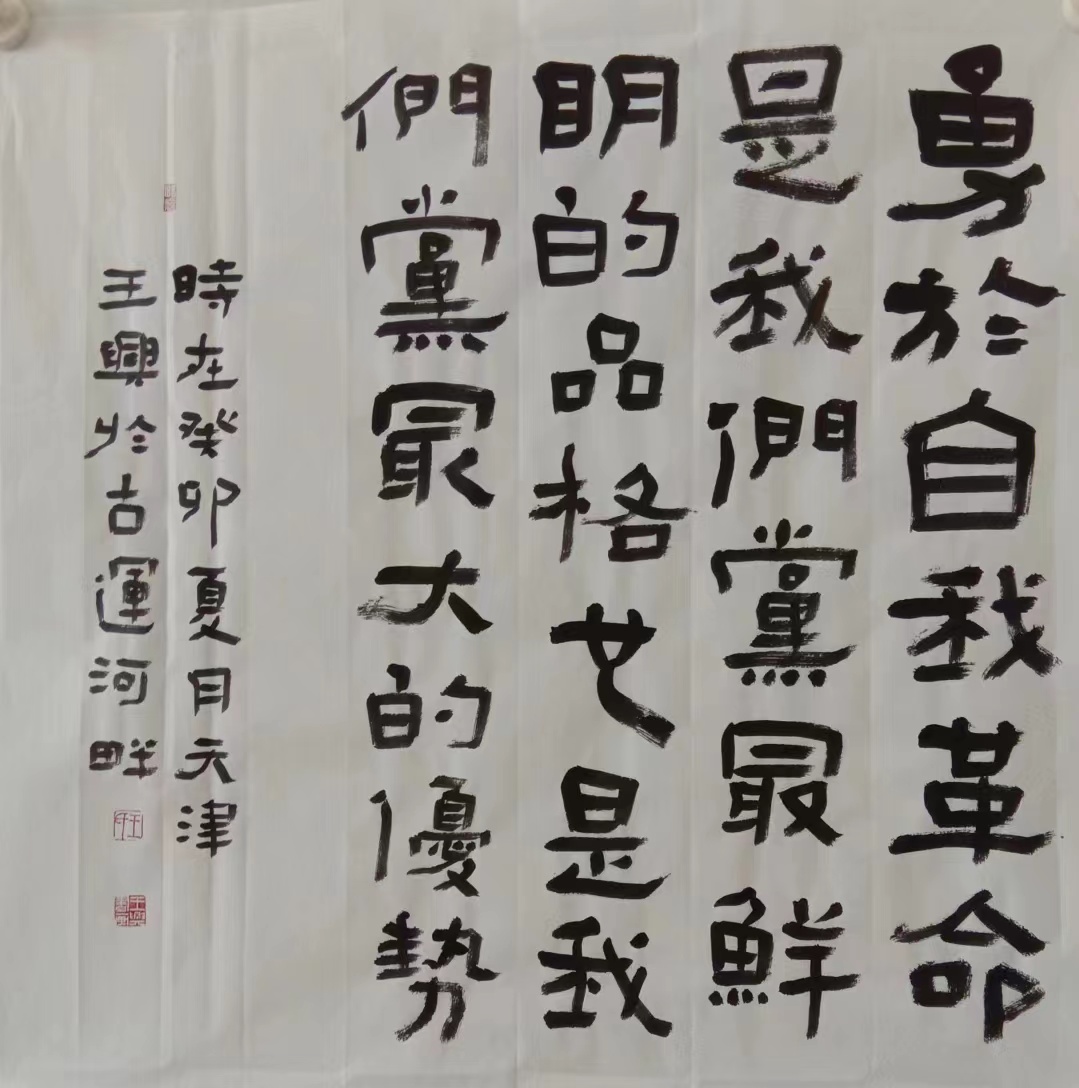 勇於自我革命
是我們黨最鮮
明的品格也是我
們黨最大的優勢
時在癸卯夏月天津
王興於古運河畔